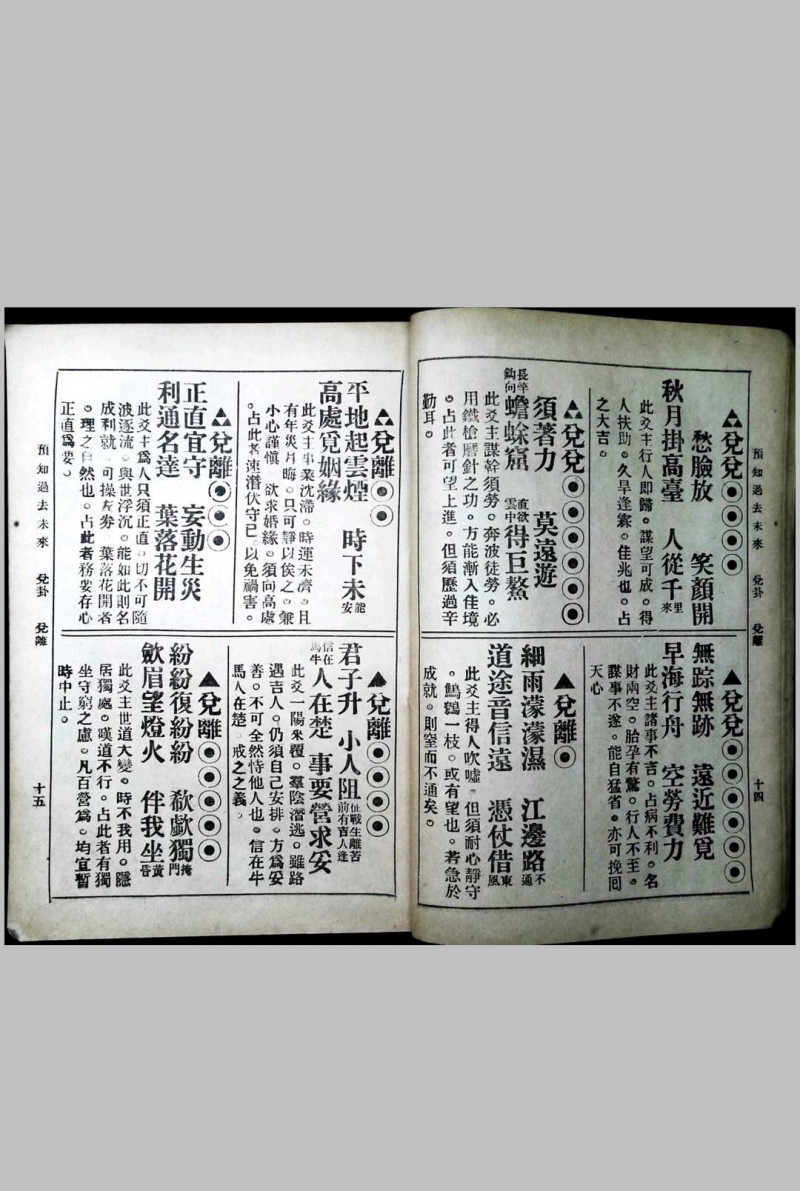 預知過去未來 兌卦 兌離 十四
兌兌
愁臉放 笑顏開
秋月掛高臺 人從千里來
此爻主行人即歸。謀望可成。得
人扶助。久旱逢霖。佳兆也。占
之大吉。
兌兌
須著力 莫遠遊
長竿鈎向蟾蜍窟 直欲雲中得巨鰲
此爻主謀幹須勞。奔波徒勞。必
用鐵槍磨針之功。方能漸入佳境
。占此者可望上進。但須歷過辛
勤耳。
兌兌
無踪無跡 遠近難覓
旱海行舟 空勞費力
此爻主諸事不吉。占病不利。名
財兩空。胎孕有驚。行人不至。
謀事不遂。能自猛省。亦可挽回
天心
兌離
細雨濛濛濕 江邊路不通
道途音信遠 憑仗借東風
此爻主得人吹噓。但須耐心靜守
。鷦鷯一枝。或有望也。若急於
成就。則窒而不通矣。
兌離
平地起雲煙 時下未能安
高處覓姻緣
此爻主事業沈滯。時運未濟。且
有年災月晦。只可靜以俟之。兼
小心謹慎 欲求婚緣。須向高處
。占此者速潛伏守己。以免禍害。
兌離
正直宜守 妄動生災
利通名達 葉落花開
此爻主為人只須正直。切不可隨
波逐流。與世浮沉。能如此則名
成利就。可操左券 葉落花開者
。理之自然也。占此者務要存心
正直為要。
兌離
君子升 小人阻 征戰生離苦 前有吉人逢
信在馬牛人在楚 事要營求妥
此爻一陽來覆。羣陰潛逃。雖路
遇吉人。仍須自己安排。方為妥
善。不可全然恃他人也。信在牛
馬人在楚。戒之之義。
兌離
紛紛復紛紛 欷歔獨掩門
斂眉望燈火 伴我坐黃昏
此爻主世道大變。時不我用。隱
居獨處。嘆道不行。占此者有獨
坐守窮之慮。凡百營為。均宜暫
時中止。
預知過去未來 兌卦 兌離 十五